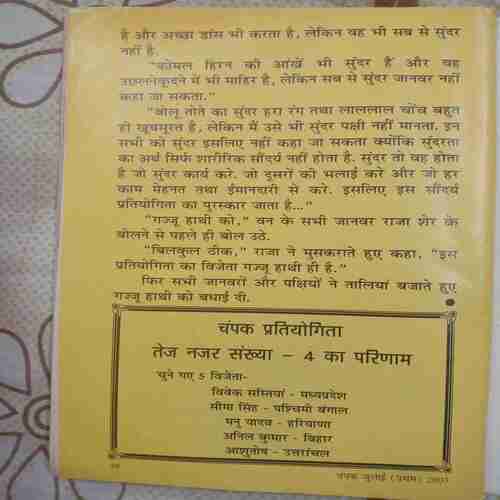 है और अच्छा डांस भी करता है, लेकिन वह भी सब से सुंदर
नहीं है.
"कोमल हिरन की आंखें भी सुंदर हैं और वह
उछलनेकूदने में भी माहिर है, लेकिन सब से सुंदर जानवर नहीं
कहा जा सकता."
"बोलू तोते का सुंदर हरा रंग तथा लाललाल चोंच बहुत
ही खूबसूरत है, लेकिन मैं उसे भी सुंदर पक्षी नहीं मानता. इन
सभी को सुंदर इसलिए नहीं कहा जा सकता क्योंकि सुंदरता
का अर्थ सिर्फ शारीरिक सौंदर्य नहीं होता है. सुंदर तो वह होता
है जो सुंदर कार्य करे. जो दूसरों की भलाई करे और जो हर
काम मेहनत तथा ईमानदारी से करे. इसलिए इस सौंदर्य
प्रतियोगिता का पुरस्कार जाता है..."
"गज्जू हाथी को," वन के सभी जानवर राजा शेर के
बोलने से पहले ही बोल उठे.
"बिलकुल ठीक," राजा ने मुसकराते हुए कहा, "इस
प्रतियोगिता का विजेता गज्जू हाथी ही है."
फिर सभी जानवरों और पक्षियों ने तालियां बजाते हुए
गज्जू हाथी को बधाई दी.
चंपक प्रतियोगिता
तेज नजर संख्या - 4 का परिणाम
चुने गए 5 विजेता-
विवेक सस्तिया - मध्यप्रदेश
सीमा सिंह - पश्चिमी बंगाल
मनु यादव - हरियाणा
अनिल कुमार - बिहार
आशुतोष - उत्तरांचल
चंपक जुलाई (प्रथम)